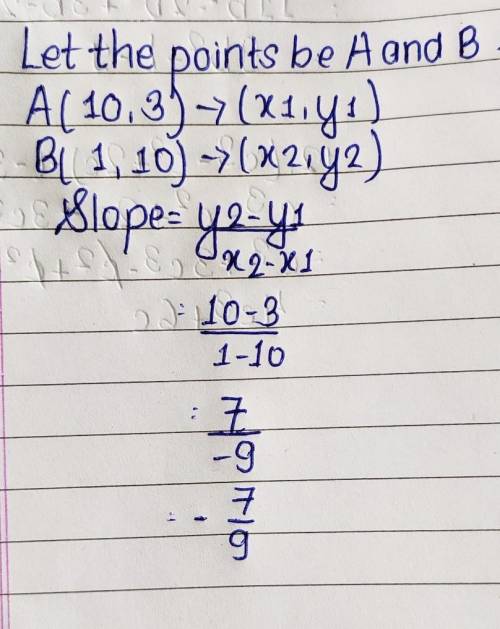 Let the points be A and B.
A(10,3) → (x1,y1)
B(1,10) → (x2,y2)
Slope= y2-y1
x2-x1
= 10-3
1-10
= 7
-9
= - 7
9